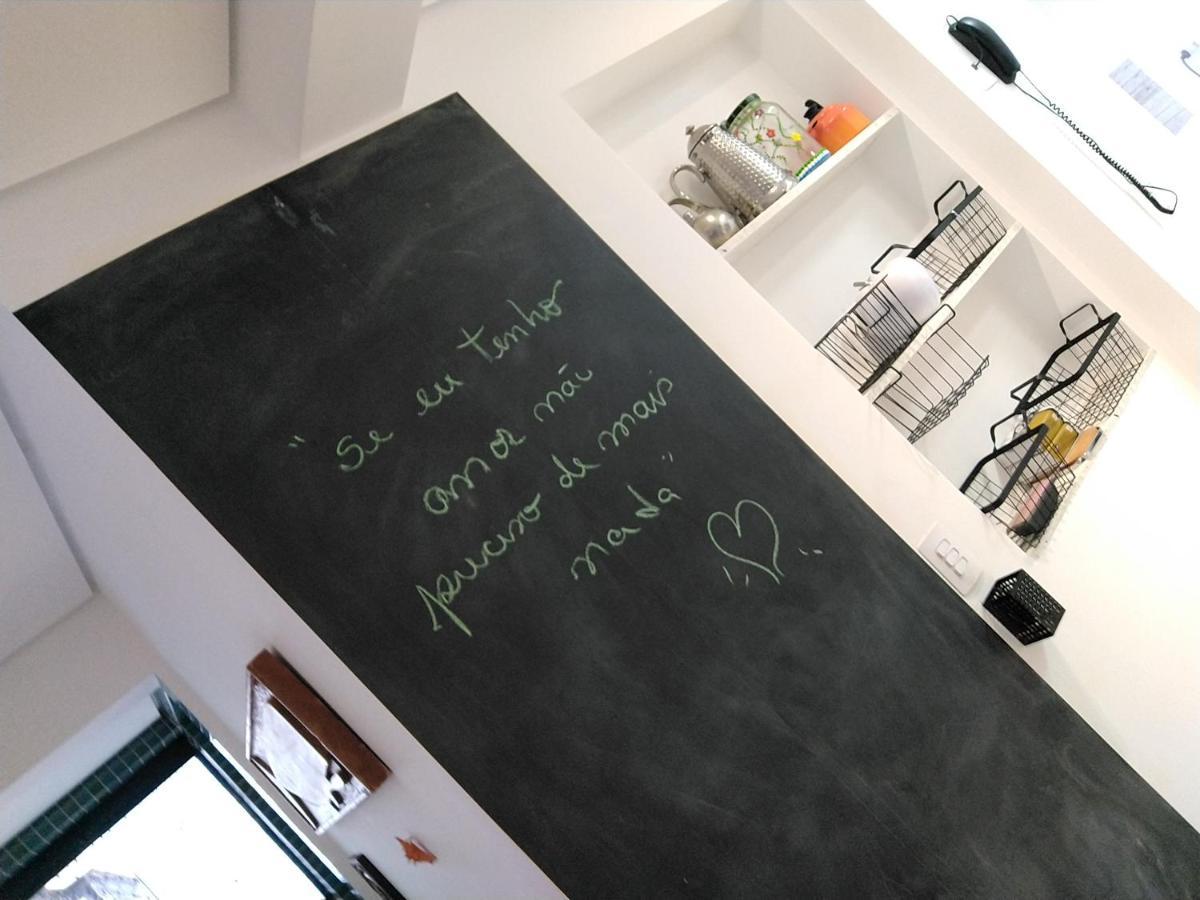 "Se eu tenho
amor não
preciso de mais
nada"